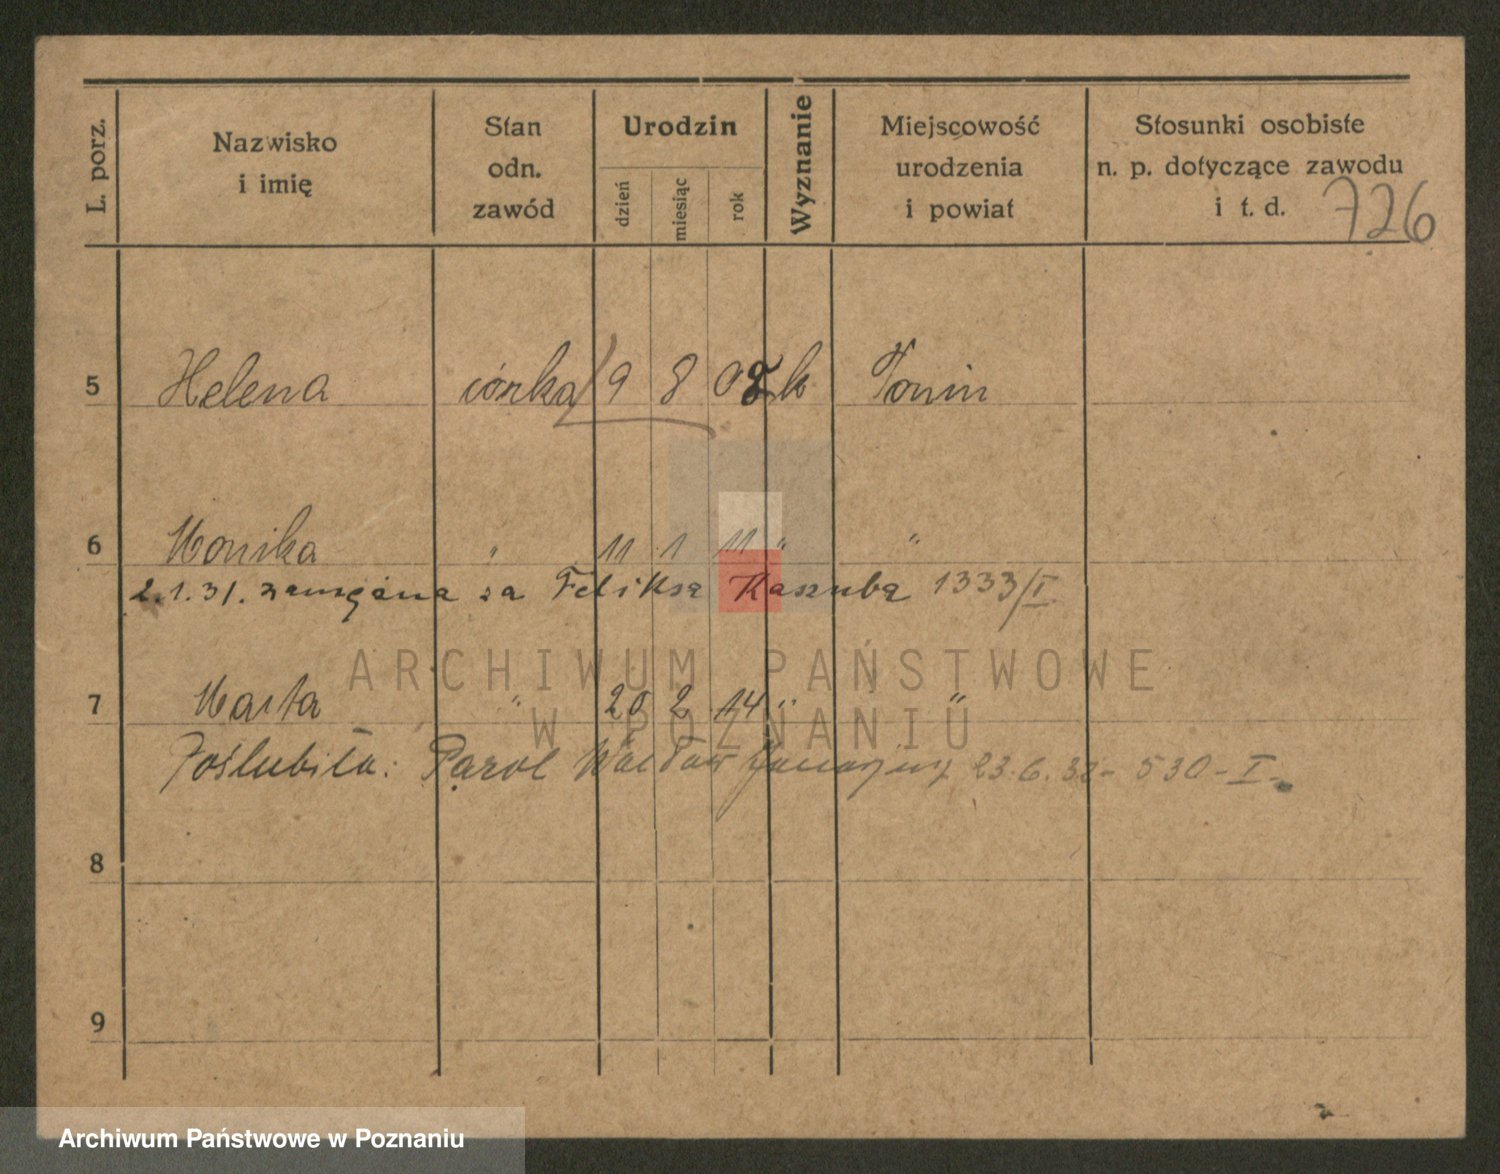 L. porz. Nazwisko i imię Stan odn. zawód Urodzin dzień miesiąc rok Wyznanie Miejscowość urodzenia i powiat Stosunki osobiste n. p. dotyczące zawodu i t. d.
726
5 Helena córka 9 8 08 k Tonin
6 Monika " 11 1 11 " "
2.1.31. zamężna za Feliksa Kaszubą 1333/I
ARCHIWUM PAŃSTWOWE
7 Marta " 20 2 14 " "
W POZNANIU
Poślubiła: Karol Wacław 23.6.32 - 530 - I
8
9
Archiwum Państwowe w Poznaniu